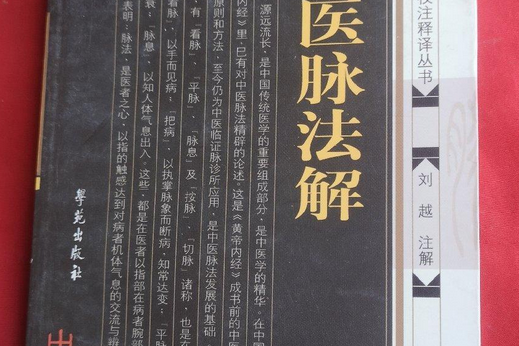 校注释译丛书
刘越 注解
医脉法解
源远流长、是中国传统医学的重要组成部分,是中医学的精华。在中国
内经》里,已有对中医脉法精辟的论述。这是《黄帝内经》成书前的中医
原则和方法,至今仍为中医临证脉诊所应用,是中医脉法发展的基础
有“看脉”、“平脉”、“脉息”及“按脉”、“切脉”诸称,也是在
看脉”,以手而见病;“把病”,以执掌脉象而断病,知常达变;“平脉
衰;“脉息”,以知人体气息出入。这些,都是在医者以指部在病者腕部
表明,脉法,是医者之心,以指的触感达到对病者机体气息的交流与辨
學苑出版社